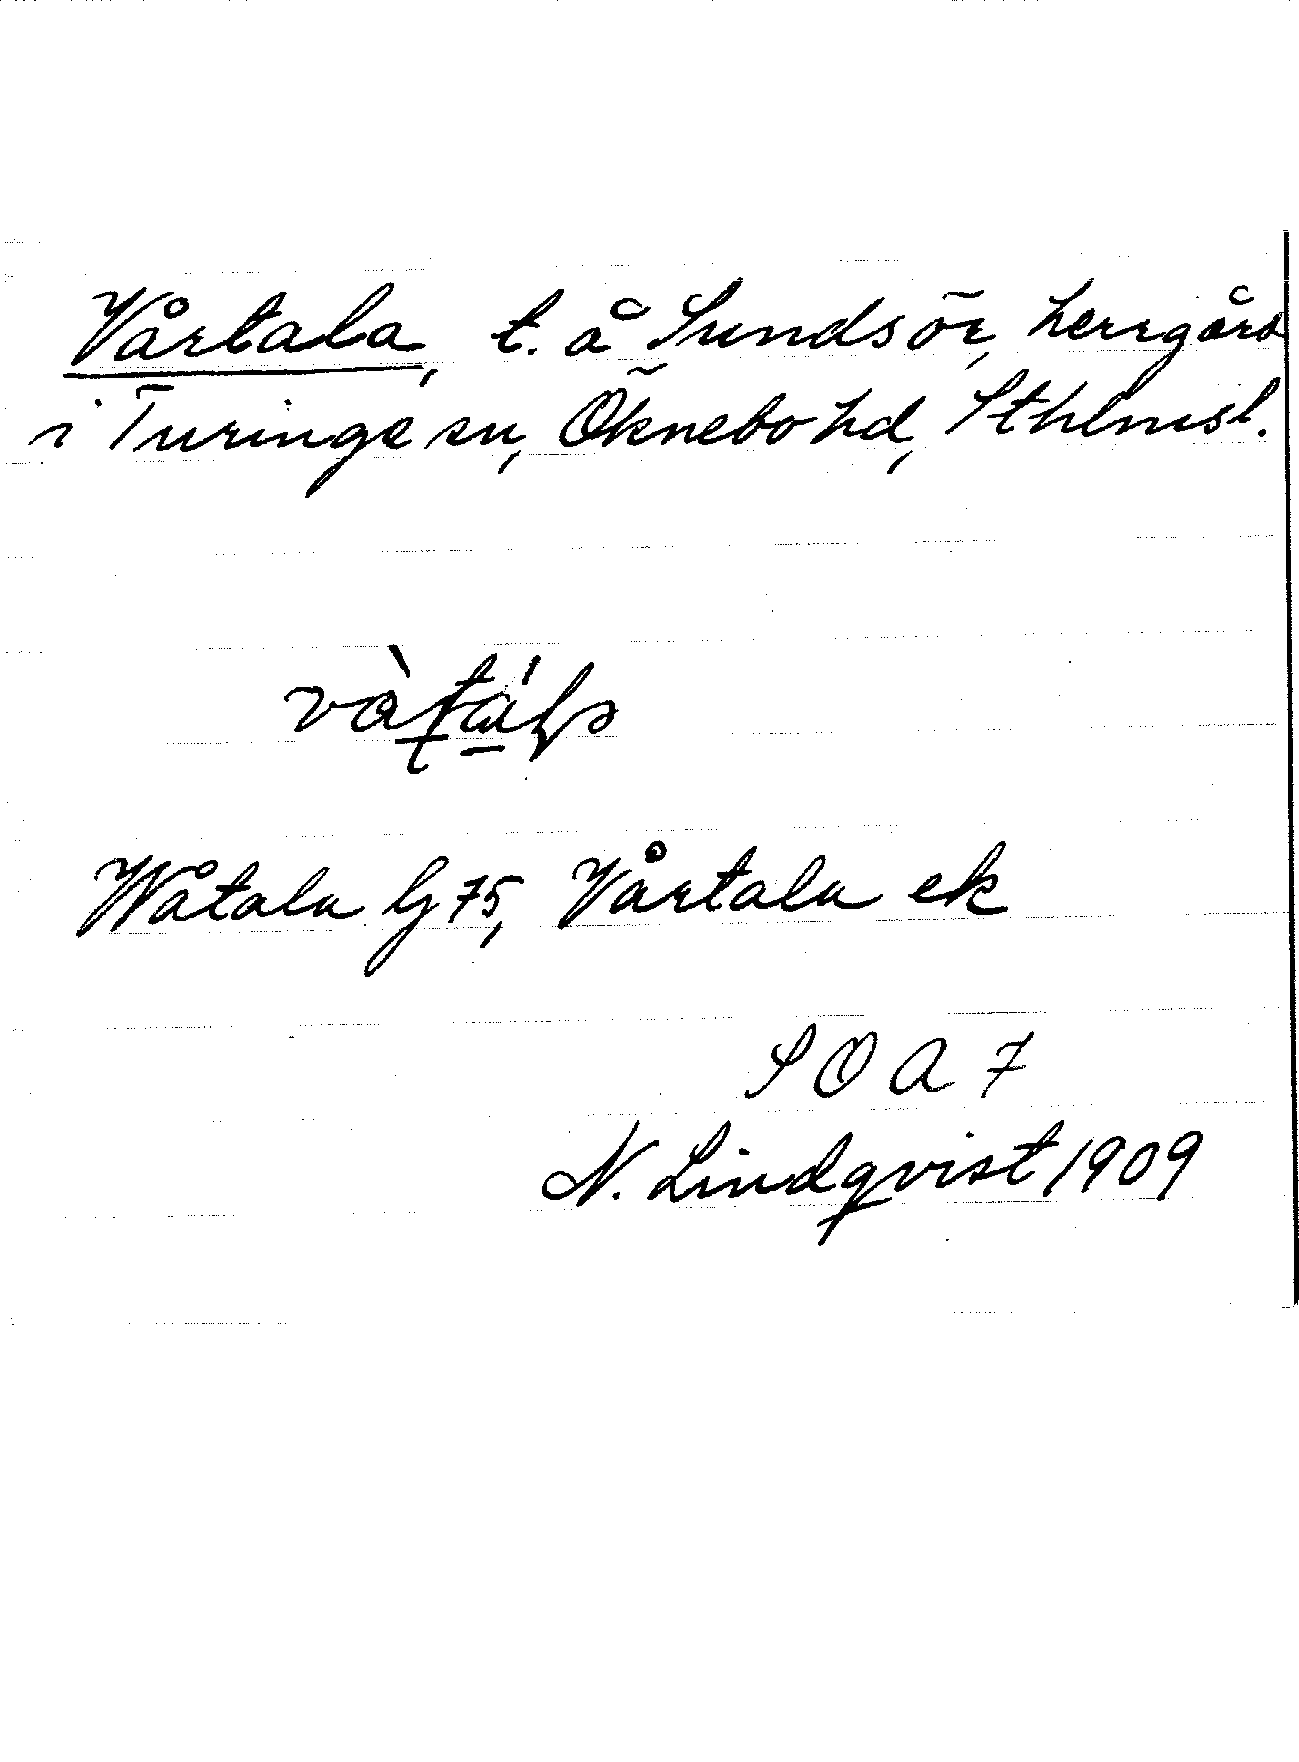 Vårtala, t. å Sundsör, herrgård
i Turinge sn, Öknebo hd, Sthlmsl.
Wåtala Gj 75, Vårtala ek
SOA 7
N. Lindqvist 1909